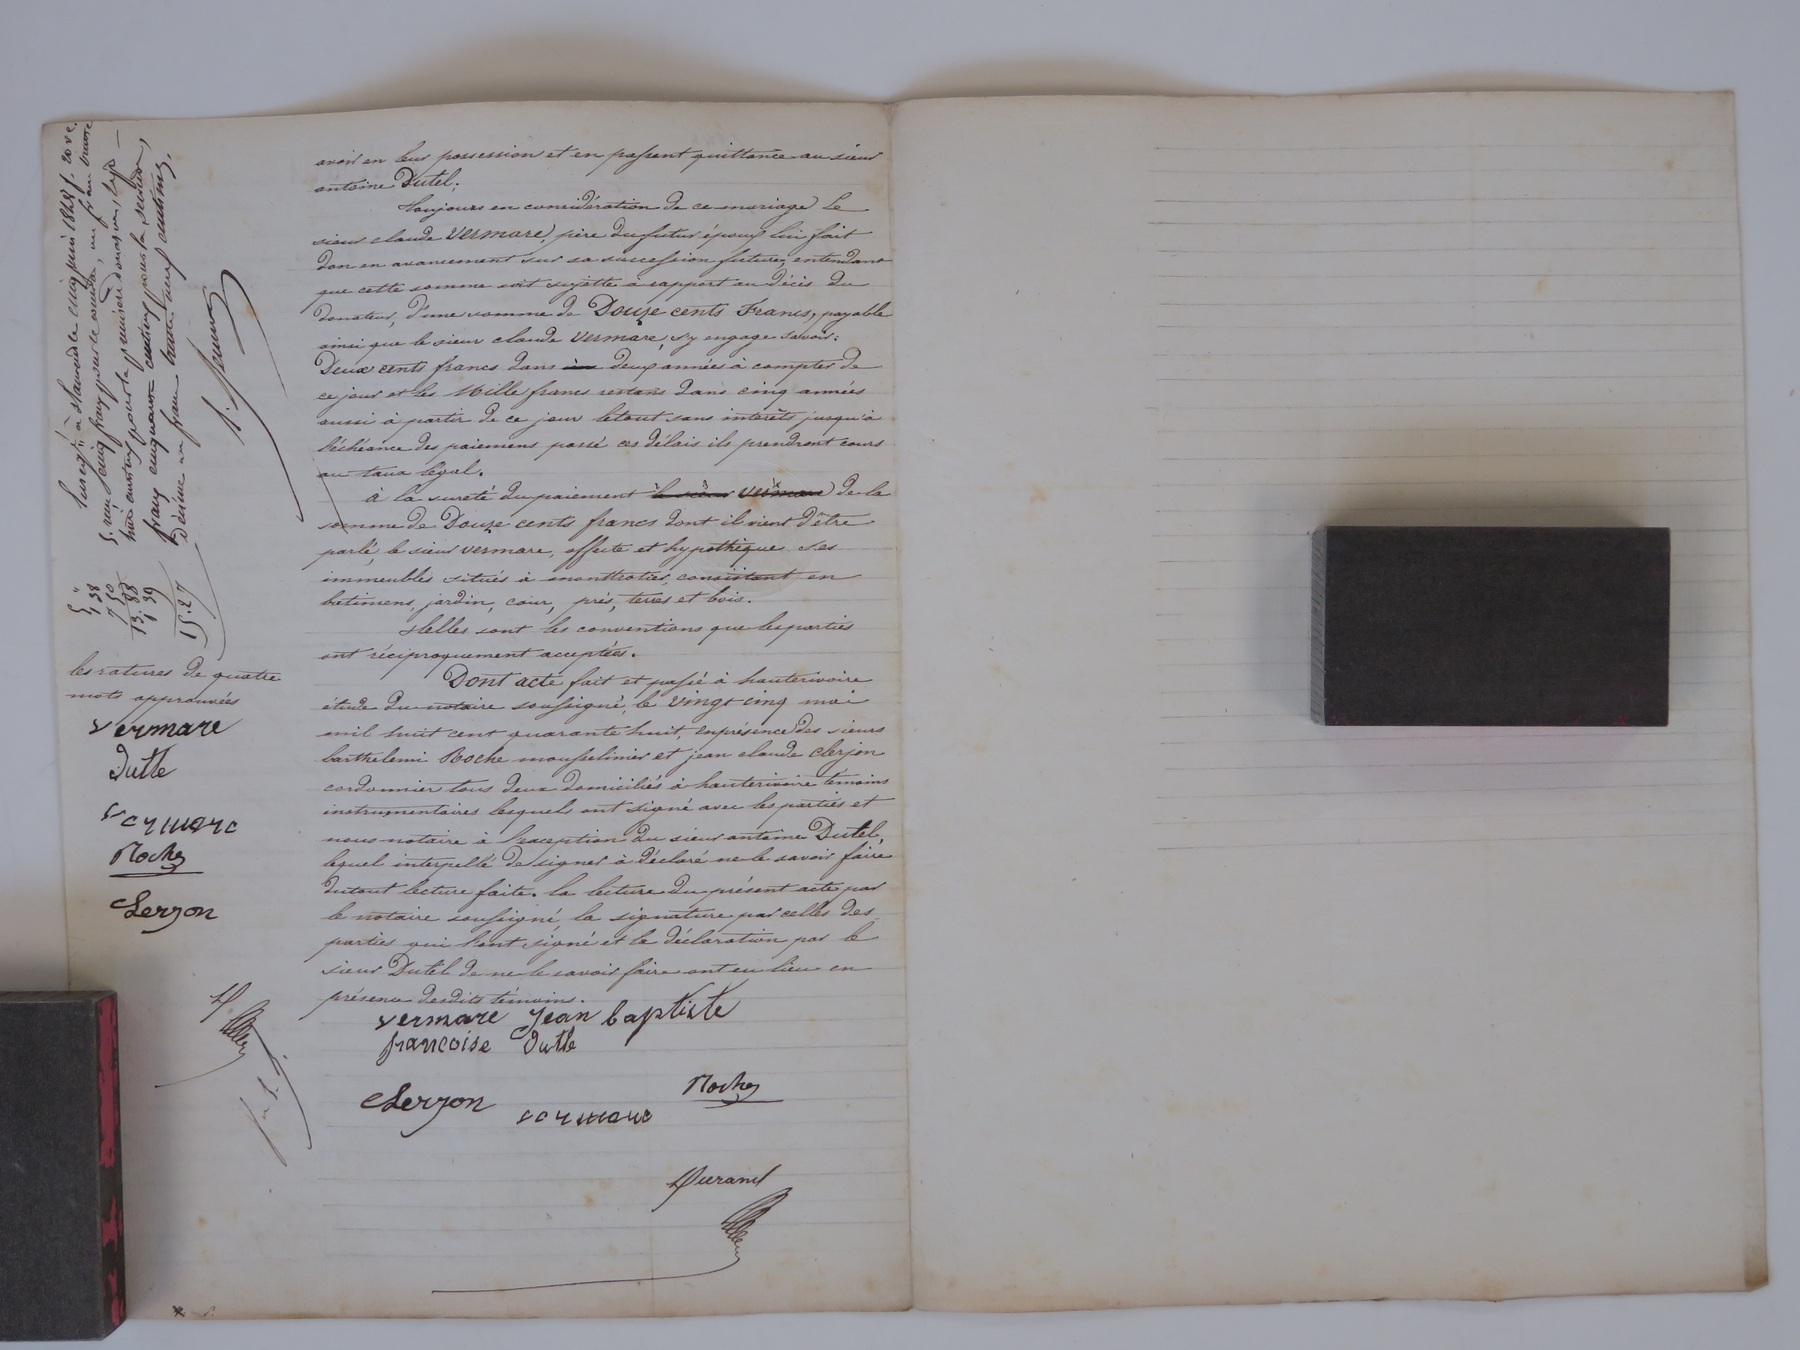 avoir en leur possession et en passent quittance au sieur
antoine Dutel.
Toujours en considération de ce mariage Le
sieur claude Vermare, père du futur époux lui fait
don en avancement sur sa succession future, entendant
que cette somme soit sujette à rapport au décès du
donateur, d'une somme de Douze cents Francs, payable
ainsi que le sieur claude Vermare, s'y engage savoir:
Deux cents francs dans deux années à compter de
ce jour et les Mille francs restans dans cinq années
aussi à partir de ce jour letout sans intérêts jusqu'à
l'échéance des paiemens passé ces délais ils prendront cours
au taux légal.
à la sureté du paiement le sieur vermare de la
somme de Douze cents francs dont il vient d'être
parlé, le sieur vermare, affecte et hypothèque ses
immeubles situés à consistant en
batimens, jardin, cour, prés, terres et bois.
Telles sont les conventions que les parties
ont réciproquement acceptées.
Dont acte fait et passé à hauterivoire
étude du notaire soussigné, le vingt cinq mai
mil huit cent quarante huit, en présence des sieurs
barthelemi Roche mousselinier et jean claude clerjon
cordonnier tous deux domiciliés à hauterivoire témoins
instrumentaires lesquels ont signé avec les parties et
nous notaire à l'exception du sieur antoine Dutel,
lequel interpellé de signer à déclaré ne le savoir faire
dutout lecture faite. la lecture du présent acte par
le notaire soussigné la signature par celles des
parties qui l'ont signé et la déclaration par le
sieur Dutel de ne le savoir faire ont eu lieu en
présence desdits témoins.
vermare Jean baptiste
francoise Dutle
Clerjon
vermare
Roche
Durand
Enregistré à St Laurent le cinq juin 1848 f. 20 v°
les ratures de quatre
mots approuvées
vermare
Dutle
vermare
Roche
Clerjon
5 "
1 38
7 50
13.88
1 39
15.27